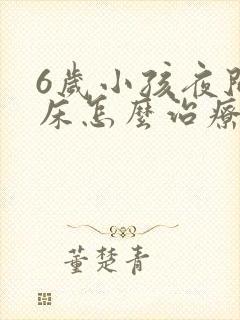 6歲小孩夜間
床怎麼治療
董楚青